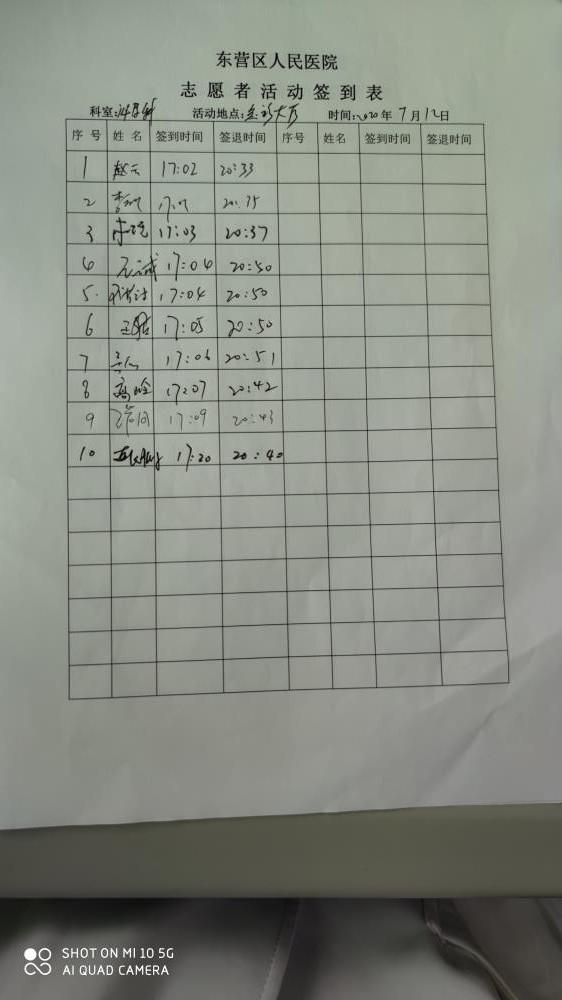 东营区人民医院
志愿者活动签到表
科室: 活动地点:急诊大厅 时间:2020年7月12日
序号 姓名 签到时间 签退时间 序号 姓名 签到时间 签退时间
1 赵云 17:02 20:33
2 20:35
3 17:03 20:37
4 17:04 20:50
5. 17:04 20:50
6 17:05 20:50
7 17:06 20:51
8 17:07 20:42
9 17:09 20:43
10 17:20 20:40
SHOT ON MI 10 5G
AI QUAD CAMERA